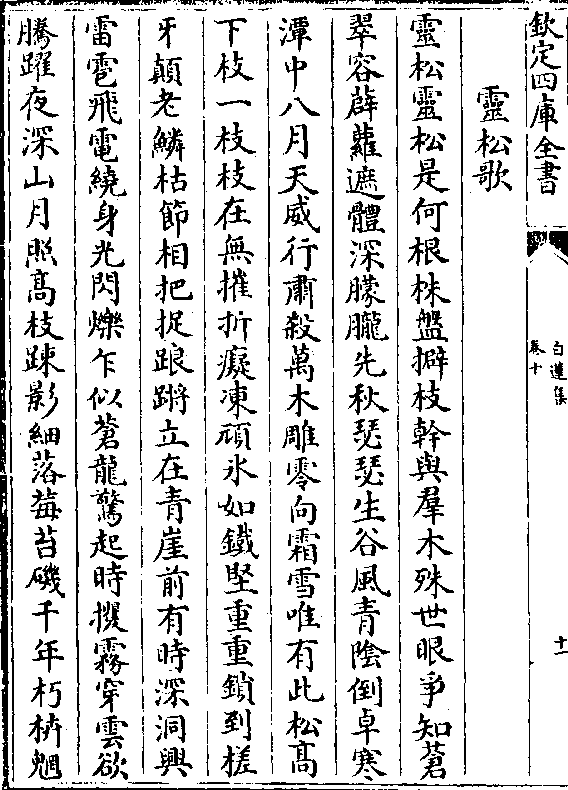 欽定四庫全書
白蓮集
卷十
十一
靈松歌
靈松靈松是何根株盤擗枝幹與羣木殊世眼爭知蒼
翠容薜蘿遮體深朦朧先秋瑟瑟生谷風青陰倒卓寒
潭中八月天威行肅殺萬木雕零向霜雪唯有此松高
下枝一枝枝在無摧折癡凍頑氷如鐵堅重重鎖到槎
牙顛老鱗枯節相把捉踉蹡立在青崖前有時深洞興
雷雹飛電繞身光閃爍乍似蒼龍驚起時攫霧穿雲欲
騰躍夜深山月照高枝疎影細落莓苔磯千年朽枿魍